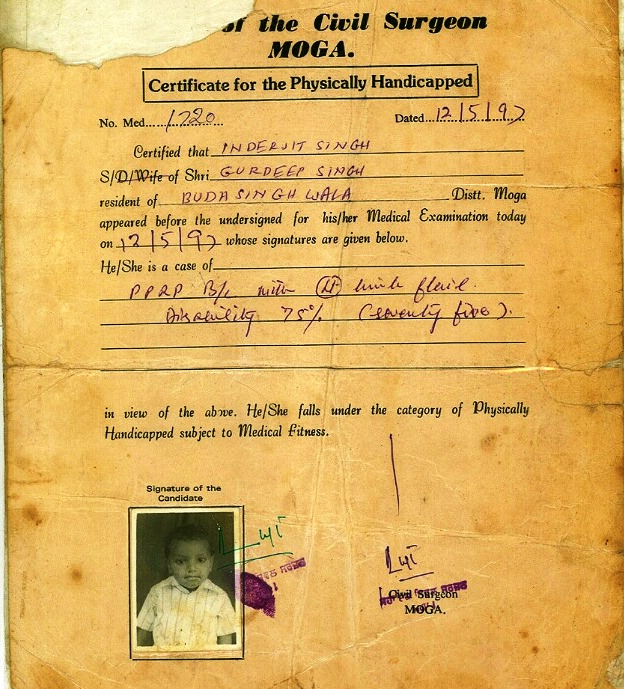 of the Civil Surgeon
MOGA.
Certificate for the Physically Handicapped
No. Med......1720...... Dated...12/5/97
Certified that INDERJIT SINGH
S/D/Wife of Shri GURDEEP SINGH
resident of BUDASINGHWALA Distt. Moga
appeared before the undersigned for his/her Medical Examination today
on 12/5/97 whose signatures are given below.
He/She is a case of
PPRP B/L with Lt limb flail.
Disability 75% (seventy five).
in view of the above. He/She falls under the category of Physically
Handicapped subject to Medical Fitness.
Signature of the
Candidate
Civil Surgeon
MOGA.